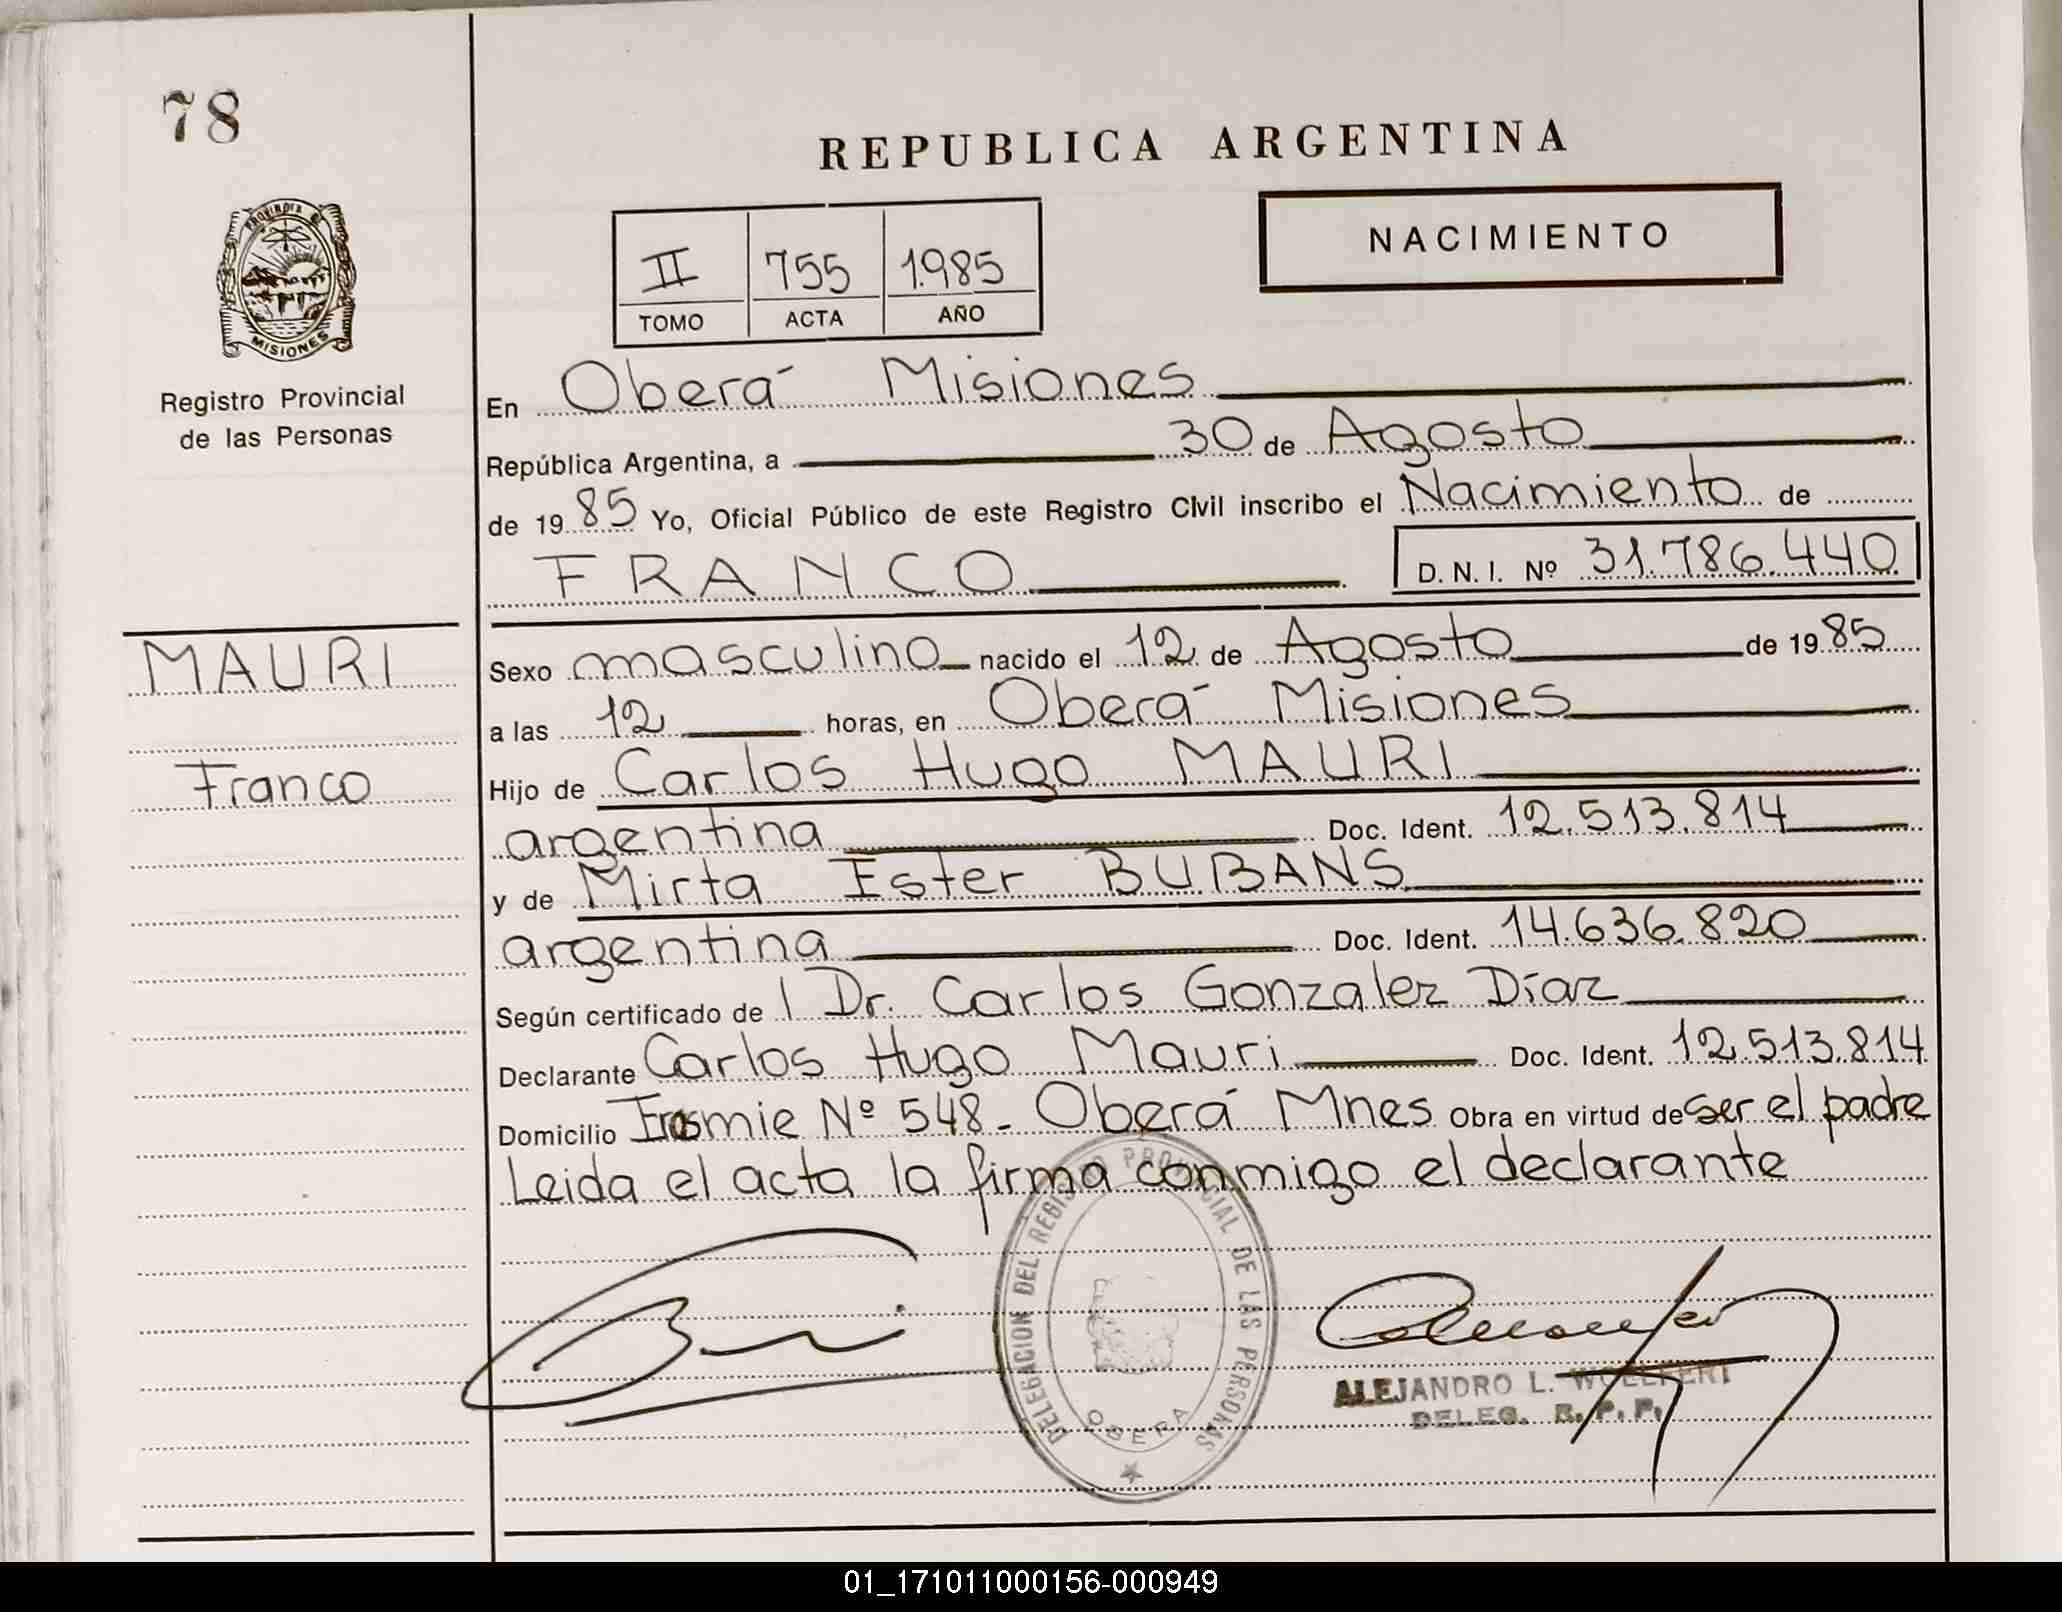 78
REPUBLICA ARGENTINA
NACIMIENTO
II 755 1.985
TOMO ACTA AÑO
PROVINCIA DE MISIONES
Registro Provincial
de las Personas
En Oberá Misiones
República Argentina, a 30 de Agosto
de 1985 Yo, Oficial Público de este Registro Civil inscribo el Nacimiento de
FRANCO D. N. I. Nº 31.786.440
MAURI
Franco
Sexo masculino nacido el 12 de Agosto de 1985
a las 12 horas, en Oberá Misiones
Hijo de Carlos Hugo MAURI
argentina Doc. Ident. 12.513.814
y de Mirta Ester BUBANS
argentina Doc. Ident. 14.636.820
Según certificado de l Dr. Carlos Gonzalez Díaz
Declarante Carlos Hugo Mauri Doc. Ident. 12.513.814
Domicilio Nº 548 - Oberá Mnes Obra en virtud de ser el padre
Leida el acta la firma conmigo el declarante
DELEGACION DEL REGISTRO PROVINCIAL DE LAS PERSONAS
OBERA
ALEJANDRO L. WOELFERT
DELEG. R. P. P.
01_171011000156-000949